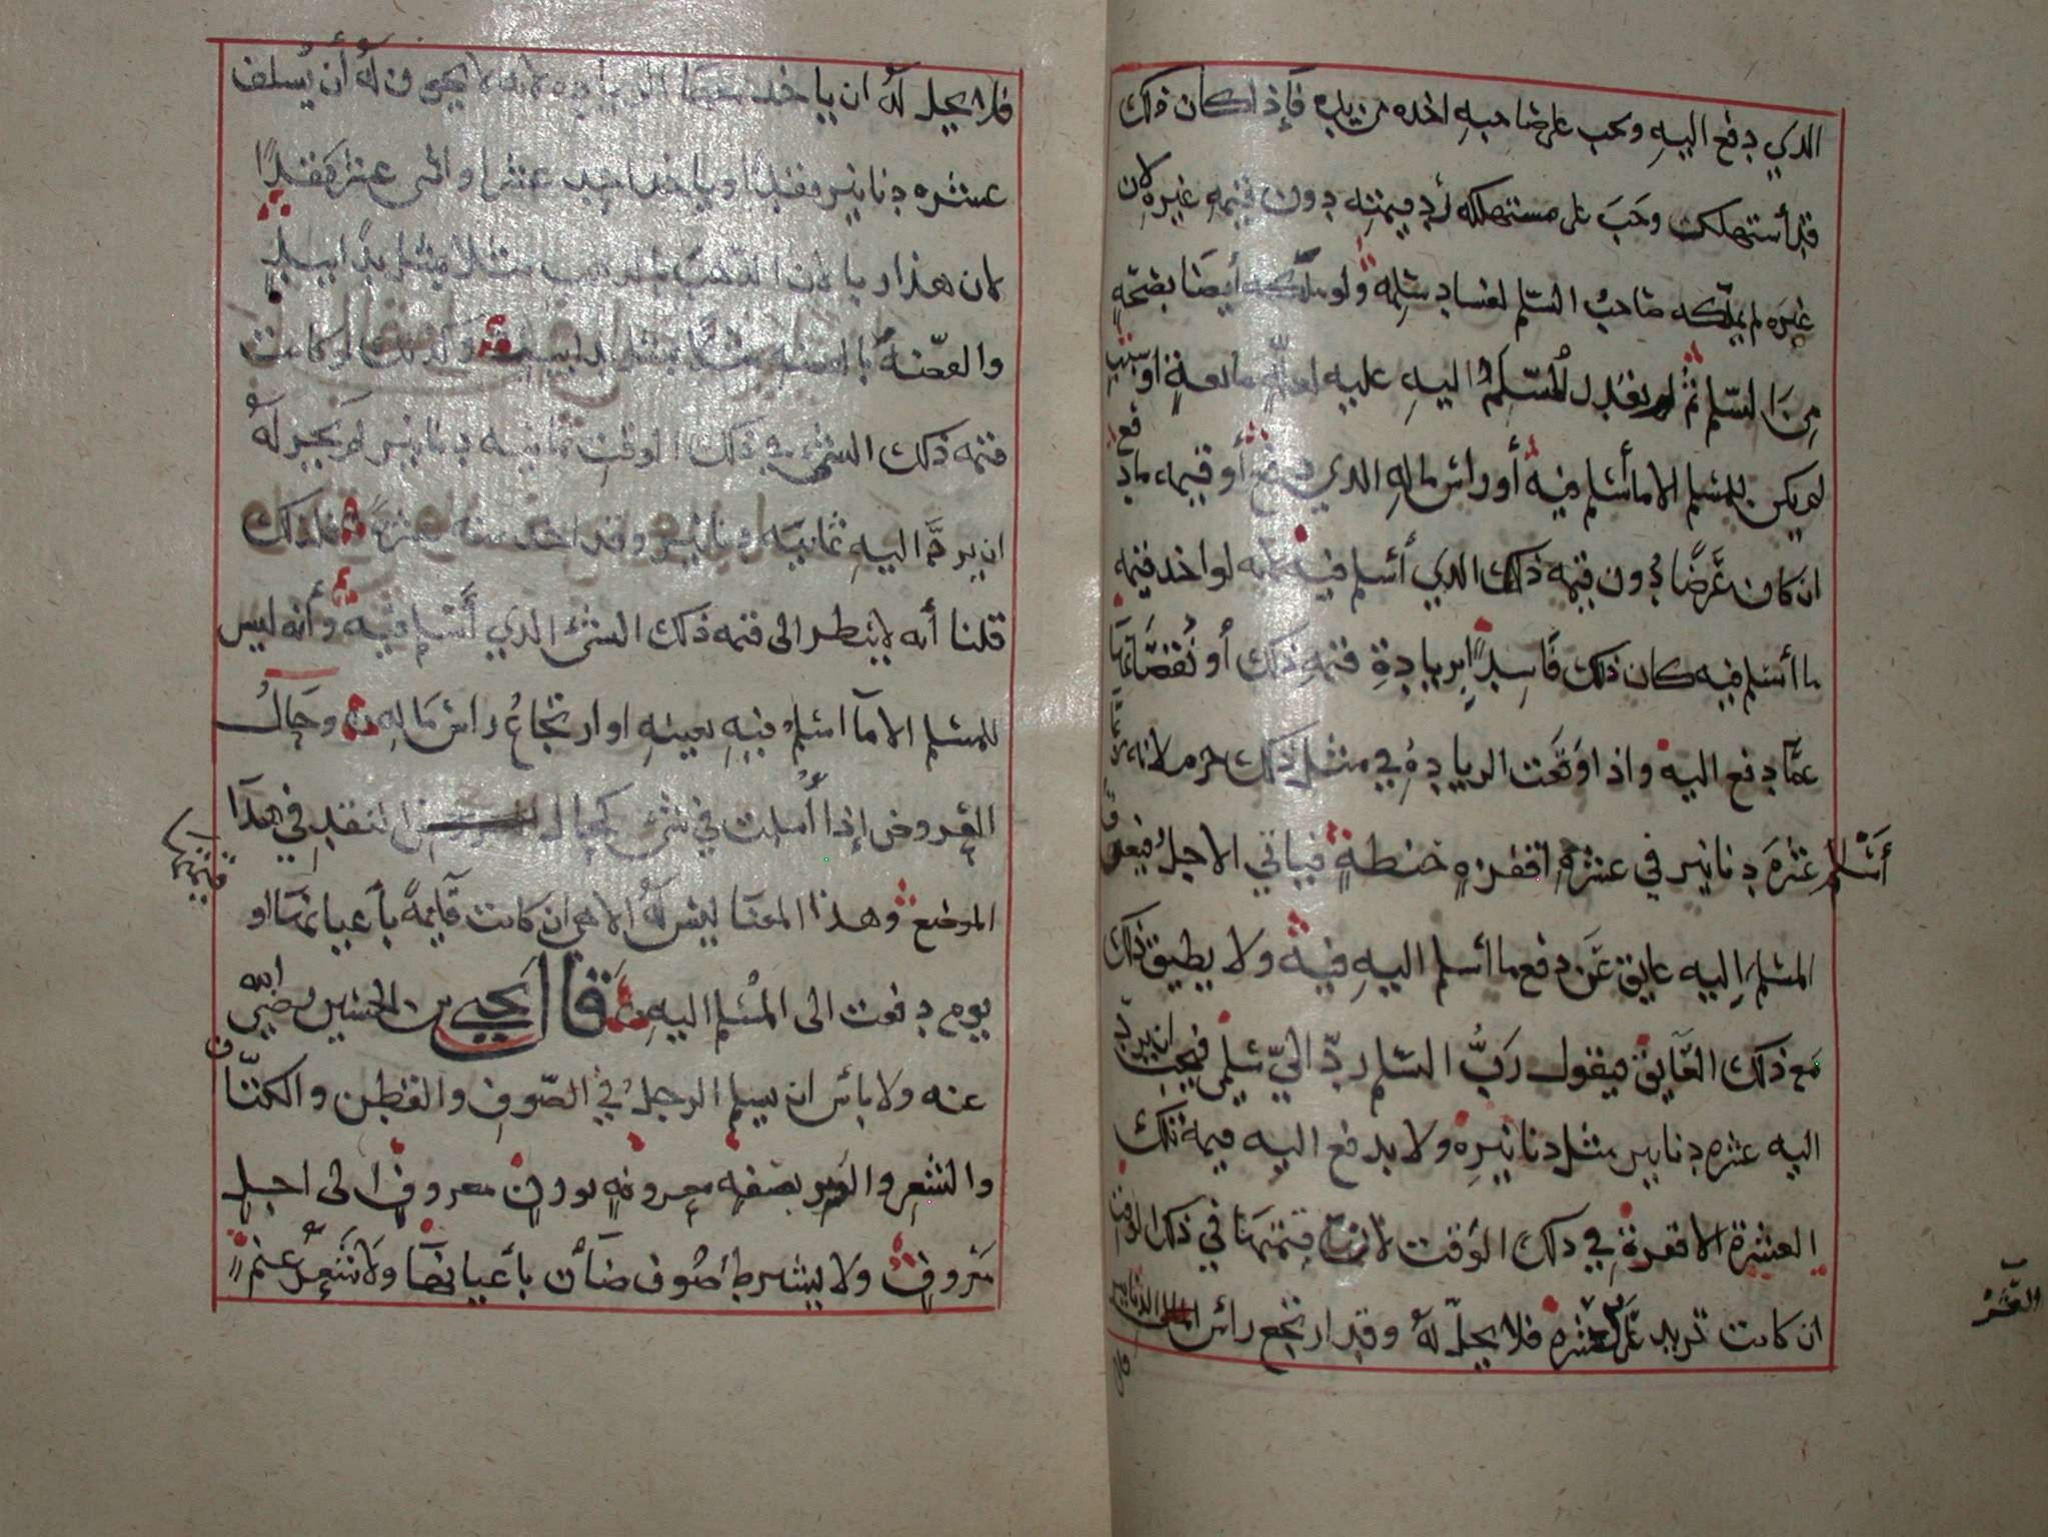 الذي دفع اليهِ وتجب على صاحبهِ اخذه من يده فإذا كان ذلك
قد أستهلكت وجَبَ على مستهلكه أد قيمته دون قيمهِ غيره لان
غيَره لم يملّكه صَاحبُ السّلم لفساد سَلِمه ولو ملّكه أيضَا بصَحّهٍ
مِنَ السّلم ثم لم يقدر المُسَلم اليهِ عليه لعلّهٍ مانعةٍ اوسبب
لم يكن للمسلم الا ما أسلم فيه أو راس مالهِ الذي دفع أو قيمه ما دفع
ان كان عَرَضًا دون قيمه ذلك الذي أسلم فيه لانه لو اخد قيمه
ما أسلم فيه كان ذلك فَاسِدًا لزيادةِ قيمهِ ذلك أو نُقصَانها
عمّا دفع اليه واذا وَقَعت الزيادهُ في مثل ذلك حرم لانه لو
أَسْلَم عشرَه دنانير في عشرهِ اقفزهٍ حنطهٍ فياتي الاجلُ فيعوق
المسلمَ اليه عايق عَن دفع ما أسلم اليهِ فيه ولا يطيق ذلك
مَع ذلك العَايق فيقول رَبُّ السّلم ردّ اليّ سَلمي فيجب ان يرد
اليه عشره دنانير مثل دنانيرِه ولا يدفع اليه قيمه تلك
العشرة الاقفرة في ذلك الوَقت لان قيمتهَا في ذلك الوقت
ان كانت تزيد على عشره فلا يحلّ لهُ وقد ارتجع رأس المال الدنانير
فلا يحل لهُ ان ياخذ معها الزيادة لانه لا يجوز لهُ أن يُسلف
عشره دنانير نقدًا وياخذ احد عشر او اثنى عشر نقدًا
لان هذا ربا لان الذهب بالذهب مثلا بمثل يدًا بيدٍ
والفضّه بالفضه مثلًا بمثل يدا بيدٍ وكذلك لو كانت
قيمه ذلك الشي في ذلك الوقتِ ثمانيه دنانير لم يَجُز لهُ
ان يردَّ اليهِ ثمانيَه دنانير وقد اخذ منه عشرهً فلذلك
قلنا أنه لا ينظر الى قيمه ذلك الشئ الذي أسْلم فيه وأنه ليس
للمسلم الا مآ اسْلم فيهِ بعينهِ او ارتجاعُ راسْ مَالهِ وحَالُ
العُروض إذا أُسلمت في شئ كحال النقدِ في هذَا
الموضع وهذا المعنَا ليسَ لهُ الا هي ان كانت قآيمهً بأعيانهَا او قيمتها
يوم دفعت الى المُسْلم اليهِ قال يحيى بن الحسين رضي الله
عنه ولا باسَ ان يسلم الرجلُ في الصّوفِ والقطن والكتّان
والشَعرِ والوبر بصفهٍ معروفهٍ بوزنٍ معروفٍ الى اجلٍ
مَعروفٍ ولا يشرط صُوف ضَأن بأعيانهَا ولا شَعرُ غنمٍ